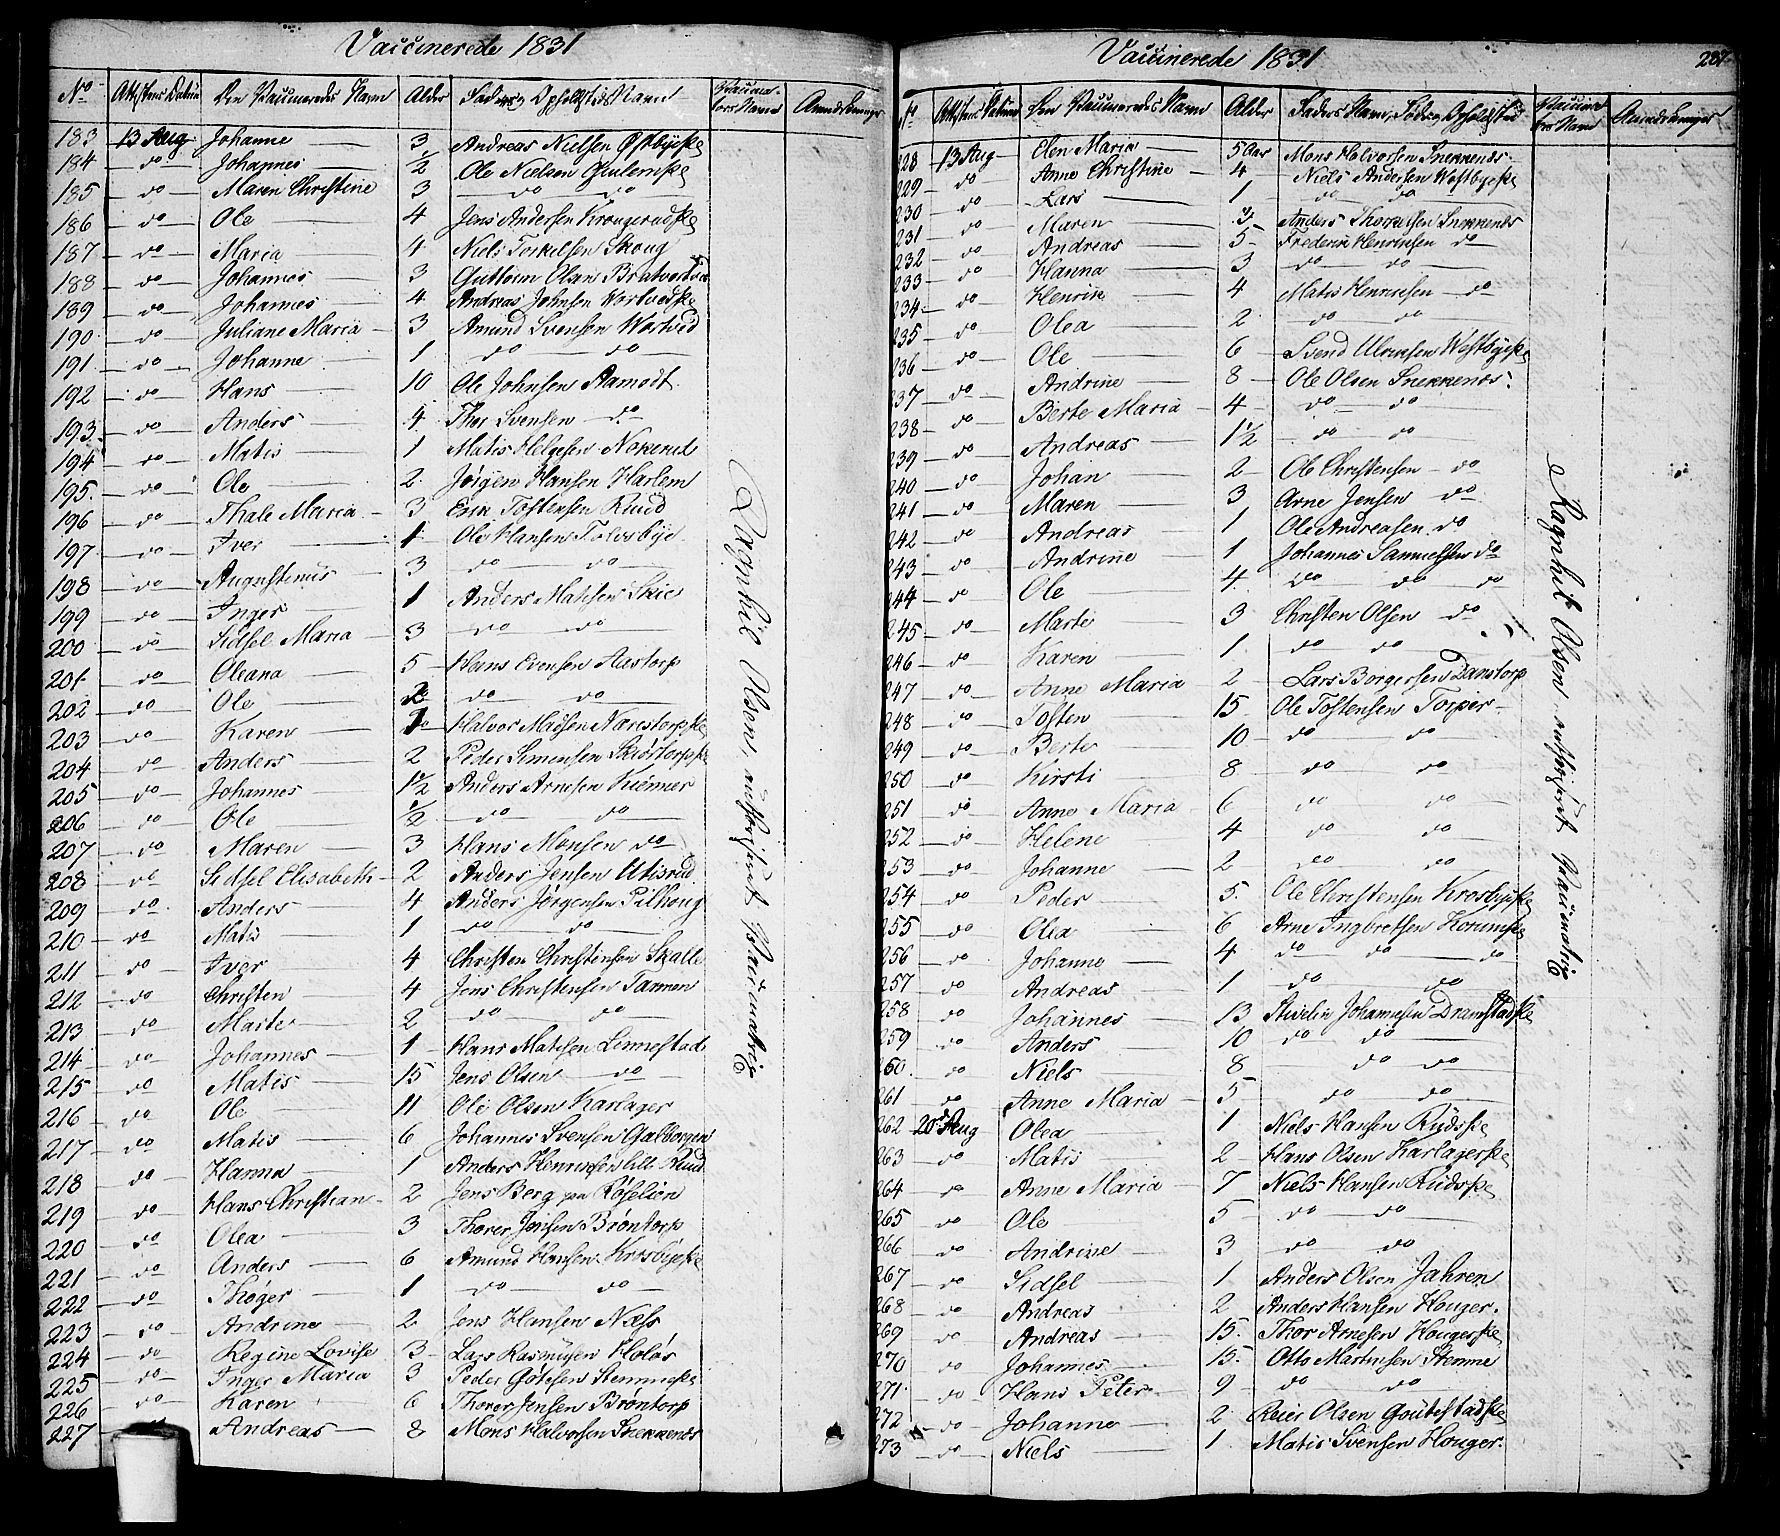 Vaccinerede 1831
No Attestens Datum Den Vaccineredes Navn Alder Faders og Opholdsteds Navn Vaccina-tors Navn Anmærkninger
183 13 Aug Johanne 3 Andreas Nielsen Østbyeske
184 do Johannes 1/2 Ole Nielsen
185 do Maren Christine 3 do do
186 do Ole 4 Jens Andersen Krogerudske
187 do Maria 4 Niels Torkelsen Skoug
188 do Johannes 3 Guttorm Olsen
189 do Johannes 4 Andreas Johnsen Vortvedske
190 do Juliane Maria 3 Amund Svensen Wortved
191 do Johanne 1 do do
192 do Hans 10 Ole Johnsen Aamodt
193 do Anders 4 Thor Svensen do
194 do Matis 1 Matis Helgesen
195 do Ole 2 Jørgen Hansen Harlem
196 do Thale Maria 3 Erik Tostensen Ruud
197 do Iver 1 Ole Hansen Tolvsbye
198 do Augustinus 3 do do
199 do Inger 1 Anders Matisen Skie
200 do Sidsel Maria 3 do do
201 do Oleana 5 Hans Evensen Aastorp
202 do Ole 2 do do
203 do Karen Halvor Madsen Narestorpske
204 do Anders 2 Peder Simensen
205 do Johannes 1 1/2 Anders Arnesen Kiønner
206 do Ole 1/2 do do
207 do Maren 3 Hans Monsen do
208 do Sidsel Elisabeth 2 Anders Jensen Utisrud
209 do Anders 4 Anders Jørgensen Pilhoug
210 do Matis 1 do do
211 do Iver 4 Christen Christensen Skalle
212 do Christen 4 Jens Christensen Tarmen
213 do Marte 2 do do
214 do Johannes 1 Hans Matisen Linnestad
215 do Matis 15 Jens Olsen do
216 do Ole 11 Ole Olsen Karlager
217 do Matis 6 Johannes Svensen Galborgen
218 do Hanna 1 Anders Henriksen lill Ruud
219 do Hans Christian 2 Jens Berg paa Røselien
220 do Olea 3 Thorer Jensen Brøntorp
221 do Anders 6 Amund Hansen Krosbyeske
222 do Thøger 1 do do
223 do Andrine 2 Jens Hansen Næss
224 do Regine Lovise 3 Lars Rasmusen Holøs
225 do Inger Maria 3 Peder Gotesen
226 do Karen 6 Thorer Jensen Brøntorp
227 do Andreas 8 Mons Halvorsen Snekkenes
Ragnhil Olsen, autoriseret Vaccinatrice
Vaccinerede 1831
287
No Attestens Datum Den Vaccineredes Navn Alder Faders Navn, Føde og Opholdsted Vaccina-tors Navn Anmærkninger
228 13 Aug Elen Maria 5 Aar Mons Halvorsen Snekkenes
229 do Anne Christine 4 Niels Andersen Westbyeske
230 do Lars 1 do do
231 do Maren Anders Thorkelsen Snekkenes
232 do Andreas 5 Frederik Henriksen do
233 do Hanna 3 do do
234 do Henrik 4 Matis Henriksen do
235 do Olea 2 do do
236 do Ole 6 Svend Ulriksen Westbyeske
237 do Andrine 8 Ole Olsen Snekkenes
238 do Berte Maria 4 do do
239 do Andreas 1 1/2 do do
240 do Johan 2 Ole Christensen do
241 do Maren 3 Arne Jensen do
242 do Andreas 1 Ole Andreasen do
243 do Andrine 1 Johannes Samuelsen do
244 do Ole 4 do do do
245 do Marte 3 Christen Olsen do
246 do Karen 1 do do
247 do Anne Maria 2 Lars Borgersen Danstorp
248 do Tosten 15 Ole Tostensen Torper
249 do Berte 10 do do
250 do Kirsti 8 do do
251 do Anne Maria 6 do do
252 do Helene 4 do do
253 do Johanne 2 do do
254 do Peder 5 Ole Christensen Krosbyeske
255 do Olea 6 Arne Ingbretsen
256 do Johanne 4 do do do
257 do Andreas 1 do do
258 do Johannes 13 Johannesen Dramstadske
259 do Anders 10 do do
260 do Niels 8 do do
261 do Anne Maria 5 do do
262 20 Aug Olea 1 Niels Hansen Rudske
263 do Matis 2 Hans Olsen Karlagerske
264 do Anne Maria 7 Niels Hansen Rudske
265 do Ole 5 do do
266 do Andrine 3 do do
267 do Sidsel 1 Anders Olsen Jahren
268 do Andreas 2 Anders Hansen Houger
269 do Andreas 15 Thor Arnesen Hougerske
270 do Johannes 15 Otto Martinsen Stemne
271 do Hans Peter 9 do do
272 do Johanne 2 Reier Olsen Goutestadske
273 do Niels 1 Matis Svensen Houger
Ragnhil Olsen autoriseret Vaccinatrice